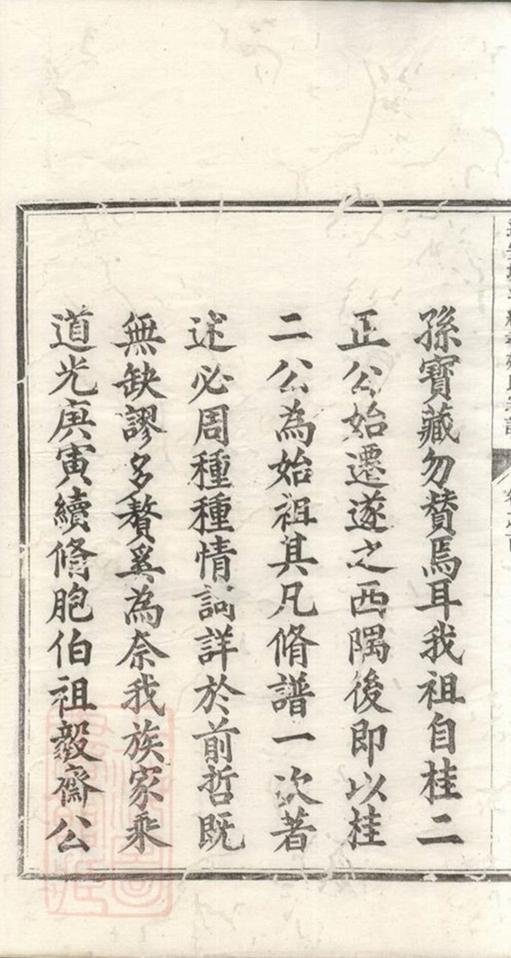 孫寶藏勿替焉耳我祖自桂二
正公始遷遂之西隅後即以桂
二公為始祖其凡脩譜一次著
述必周種種情詞詳於前哲既
無缺謬多贅奚為奈我族家乘
道光庚寅續脩胞伯祖毅齋公